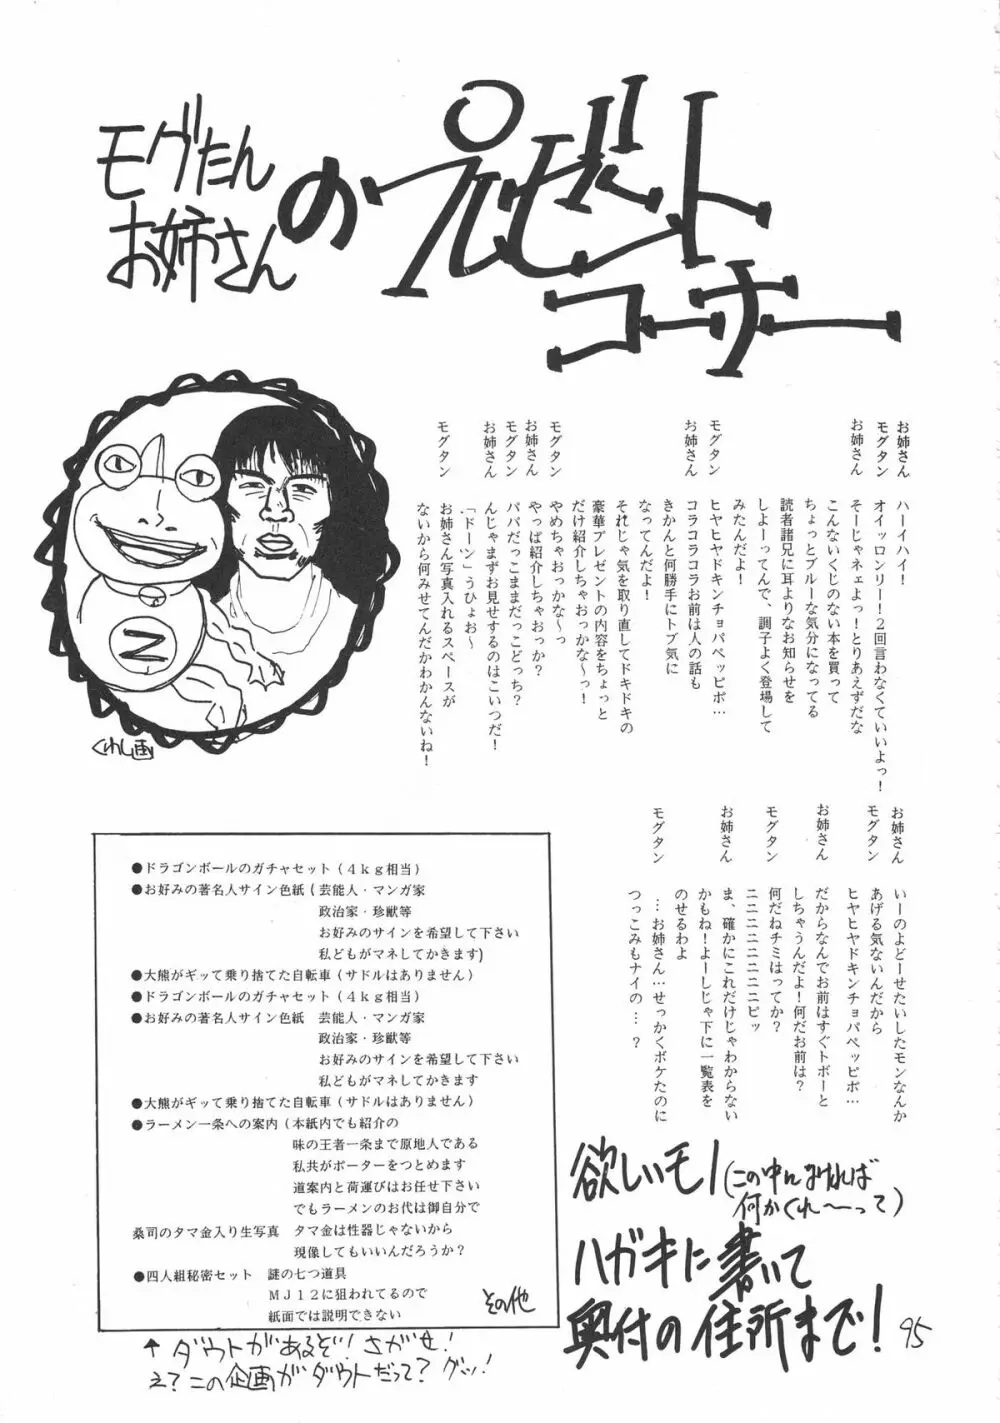 モグたん
お姉さん
のプレゼント
コーナー
お姉さん　ハーイハイ！
モグタン　オイッロンリー！２回言わなくていいよっ！
お姉さん　そーじゃネェよっ！とりあえずだな
こんないくじのない本を買って
ちょっとブルーな気分になってる
読者諸兄に耳よりなお知らせを
しよーってんで、調子よく登場して
みたんだよ！
モグタン　ヒヤヒヤドキンチョパペッピポ…
お姉さん　コラコラコラお前は人の話も
きかんと何勝手にトブ気に
なってんだよ！
それじゃ気を取り直してドキドキの
豪華プレゼントの内容をちょっと
だけ紹介しちゃおっかな～っ！
モグタン　やめちゃおっかな～っ
お姉さん　やっぱ紹介しちゃおっか？
モグタン　パパだっこままだっこどっち？
お姉さん　んじゃまずお見せするのはこいつだ！
「ドーン」うひょお～
モグタン　お姉さん写真入れるスペースが
ないから何みせてんだかわかんないね！
くわし画
お姉さん　いーのよどーせたいしたモンなんか
あげる気ないんだから
モグタン　ヒヤヒヤドキンチョパペッピポ…
お姉さん　だからなんでお前はすぐトボーと
しちゃうんだよ！何だお前は？
モグタン　何だねチミはってか？
ニニニニニニニニピッ
お姉さん　ま、確かにこれだけじゃわからない
かもね！よーしじゃ下に一覧表を
のせるわよ
モグタン　…お姉さん…せっかくボケたのに
つっこみもナイの…？
●ドラゴンボールのガチャセット（４ｋｇ相当）
●お好みの著名人サイン色紙（芸能人・マンガ家
政治家・珍獣等
お好みのサインを希望して下さい
私どもがマネしてかきます）
●大熊がギッて乗り捨てた自転車（サドルはありません）
●ドラゴンボールのガチャセット（４ｋｇ相当）
●お好みの著名人サイン色紙　芸能人・マンガ家
政治家・珍獣等
お好みのサインを希望して下さい
私どもがマネしてかきます
●大熊がギッて乗り捨てた自転車（サドルはありません）
●ラーメン一条への案内（本紙内でも紹介の
味の王者一条まで原地人である
私共がポーターをつとめます
道案内と荷運びはお任せ下さい
でもラーメンのお代は御自分で
桑司のタマ金入り生写真　タマ金は性器じゃないから
現像してもいいんだろうか？
●四人組秘密セット　謎の七つ道具
ＭＪ１２に狙われてるので
紙面では説明できない
その他
↑ダウトがあるぞ！さがせ！
え？この企画がダウトだって？グッ！
欲しいモノ（この中になければ
何かくれ～って）
ハガキに書いて
奥付の住所まで！
95